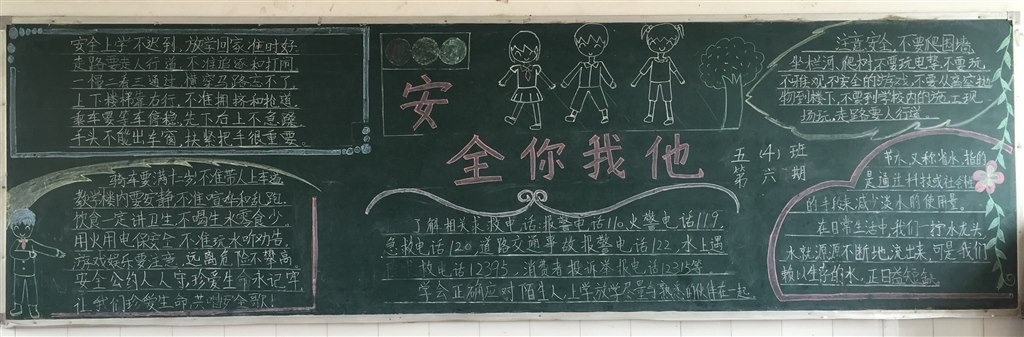 安全上学不迟到,放学回家准时好
走路要走人行道,不准追逐和打闹
一慢二看三通过,横穿马路忘不了
上下楼梯靠右行,不准拥挤和抢道
乘车要等车停稳,先下后上不急躁
手头不能出车窗,扶紧把手很重要。
骑车要满十二岁,不准带人上车道
教学楼内要安静,不准喧哗和乱跑,
饮食一定讲卫生,不喝生水零食少
用火用电保安全,不准玩水听劝告,
游戏娱乐要注意,远离危险不攀高
安全公约人人守,珍爱生命永记牢
让我们珍爱生命,共
安
全你我他
五(4)班
第六期
了解相关求救电话:报警电话110,火警电话119
急救电话120,道路交通事故报警电话122,水上遇
救电话12395,消费者投诉举报电话12315等
学会正确应对陌生人,上学放学尽量与熟悉的伙伴在一起
注意安全,不要爬围墙
坐栏河,爬树,不要玩电梯,不要玩
不雅观不安全的游戏,不要从高空抛
物到楼下,不要到学校内的施工现
场玩,走路要人行道
节水,又称省水,指的
是通过科技或社会性
的手段来减少淡水的使用量。
在日常生活中,我们一拧水龙头,
水就源源不断地流出来,可是我们
赖以生存的水,正日益短缺